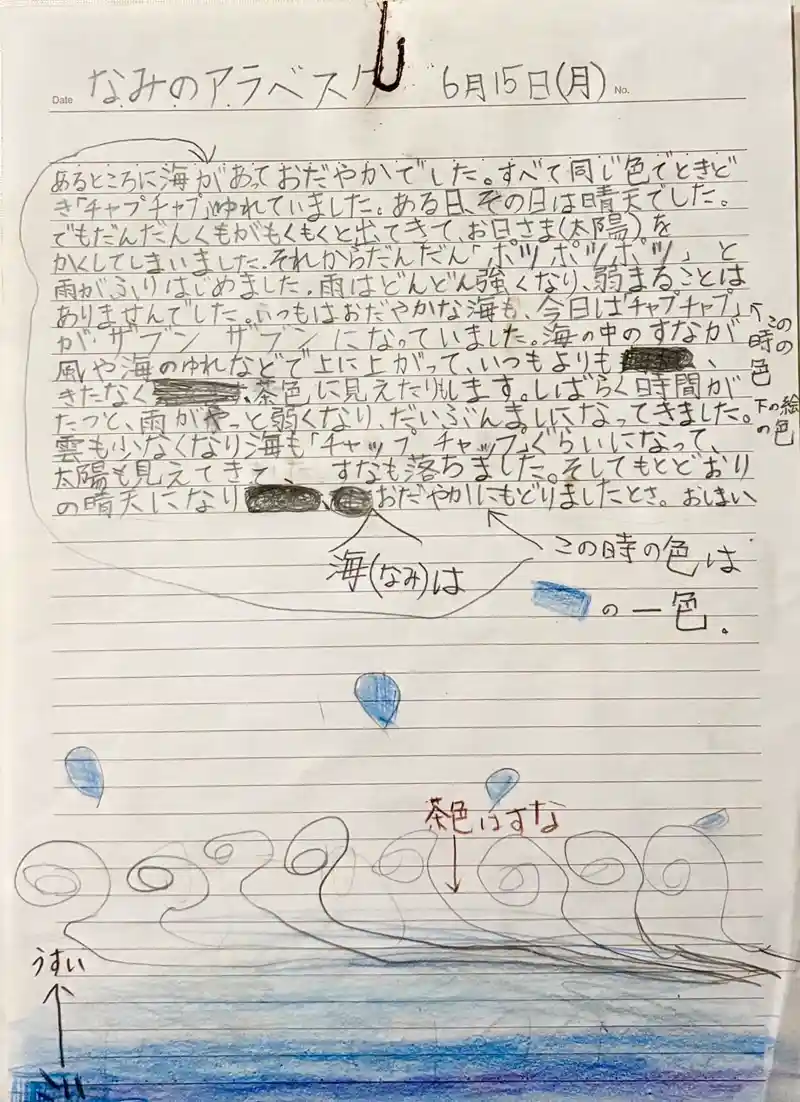 Date なみのアラベスク 6月15日(月) No.
あるところに海があっておだやかでした。すべて同じ色でときど
き「チャプチャプ」ゆれていました。ある日、その日は晴天でした。
でもだんだんくもがもくもくと出てきて、お日さま(太陽)を
かくしてしまいました。それからだんだん「ポツ ポツッポツッ」と
雨がふりはじめました。雨はどんどん強くなり、弱まることは
ありませんでした。いつもはおだやかな海も、今日は「チャプチャプ」
が ザブン ザブン になっていました。海の中のすなが
風や海のゆれなどで上に上がって、いつもよりも 、
きたなく 茶色に見えたりもします。しばらく時間が
たつと、雨がやっと弱くなり、だいぶんましになってきました。
雲も少なくなり海も「チャップ チャップ」ぐらいになって、
太陽も見えてきて、 すなも落ちました。そしてもとどおり
の晴天になり 、 おだやかにもどりましたとさ。おしまい
この時の色
下の絵の色
海(なみ)は
この時の色は
の一色.
茶色はすな
うすい
こい